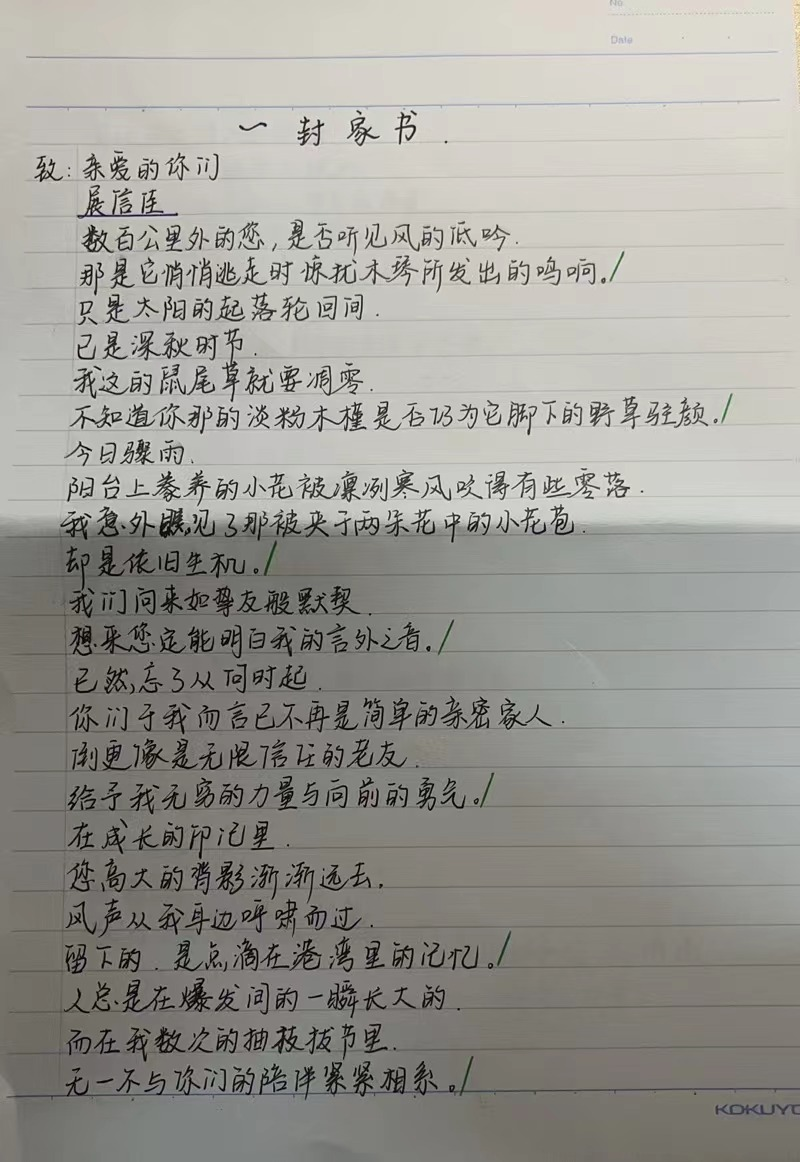 No
Date
一封家书.
致:亲爱的你们
展信佳
数百公里外的您,是否听见风的低吟.
那是它悄悄逃走时惊扰木琴所发出的鸣响。/
只是太阳的起落轮回间.
已是深秋时节.
我这的鼠尾草就要凋零.
不知道你那的淡粉木槿是否仍为它脚下的野草驻颜。/
今日骤雨.
阳台上豢养的小花被凛冽寒风吹得有些零落.
我意外瞧见了那被夹于两朵花中的小花苞.
却是依旧生机。/
我们向来如挚友般默契.
想来您定能明白我的言外之音。/
已然,忘了从何时起.
你们于我而言已不再是简单的亲密家人.
倒更像是无限信任的老友.
给予我无穷的力量与向前的勇气。/
在成长的印记里.
您高大的背影渐渐远去.
风声从我耳边呼啸而过.
留下的.是点滴在港湾里的记忆。/
人总是在爆发间的一瞬长大的.
而在我数次的抽枝拔节里.
无一不与你们的陪伴紧紧相系。/
KOKUYO